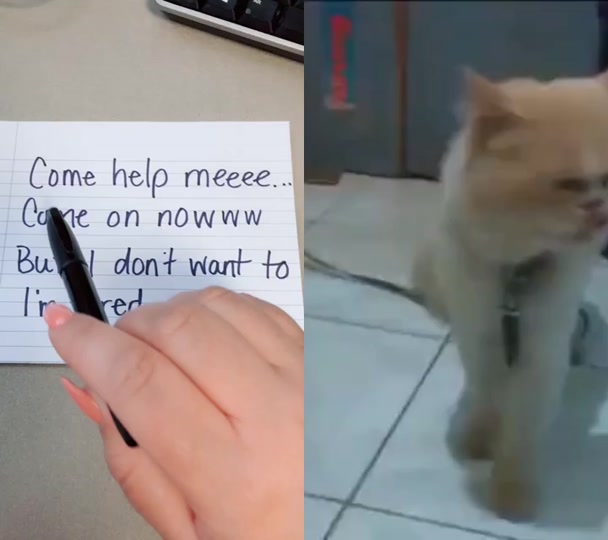 Come help meeee...
Come on nowww
But I don't want to
I'm